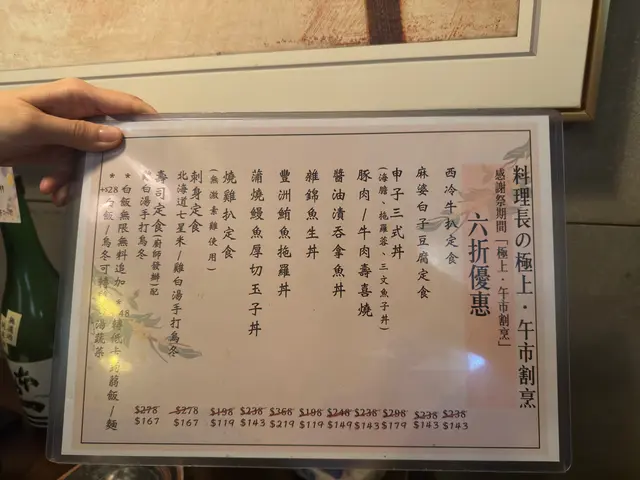 料理長の極上・午市割烹
感謝祭期間「極上・午市割烹」
六折優惠
西冷牛扒定食
$238
$143
麻婆白子豆腐定食
$238
$143
申子三式丼
(海膽、拖羅蓉、三文魚子丼)
$298
$179
豚肉/牛肉壽喜燒
$238
$143
醬油漬吞拿魚丼
$248
$149
雜錦魚生丼
$198
$119
豐洲鮪魚拖羅丼
$368
$219
蒲燒鰻魚厚切玉子丼
$238
$143
燒雞扒定食
(無激素雞使用)
$198
$119
刺身定食
北海道七星米/雞白湯手打烏冬
$278
$167
壽司定食(廚師發辦)配
白湯手打烏冬
$278
$167
*白飯無限無料追加 48 轉低卡蒟蒻飯/麵
*+$28 白飯/烏冬可轉 海蔬菜